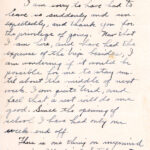 I am sorry to have had to
leave so suddenly and un-
expectedly, and thank you for
the privilege of going. Now that
I am here, and have had the
expense of the trip, besides, I
am wondering if it would be
possible for me to stay un-
til about the middle of next
week. I am quite tired, and
feel that a rest will do me
good. Since the opening of
school I have had only one
week end off.
There is one thing on my mind